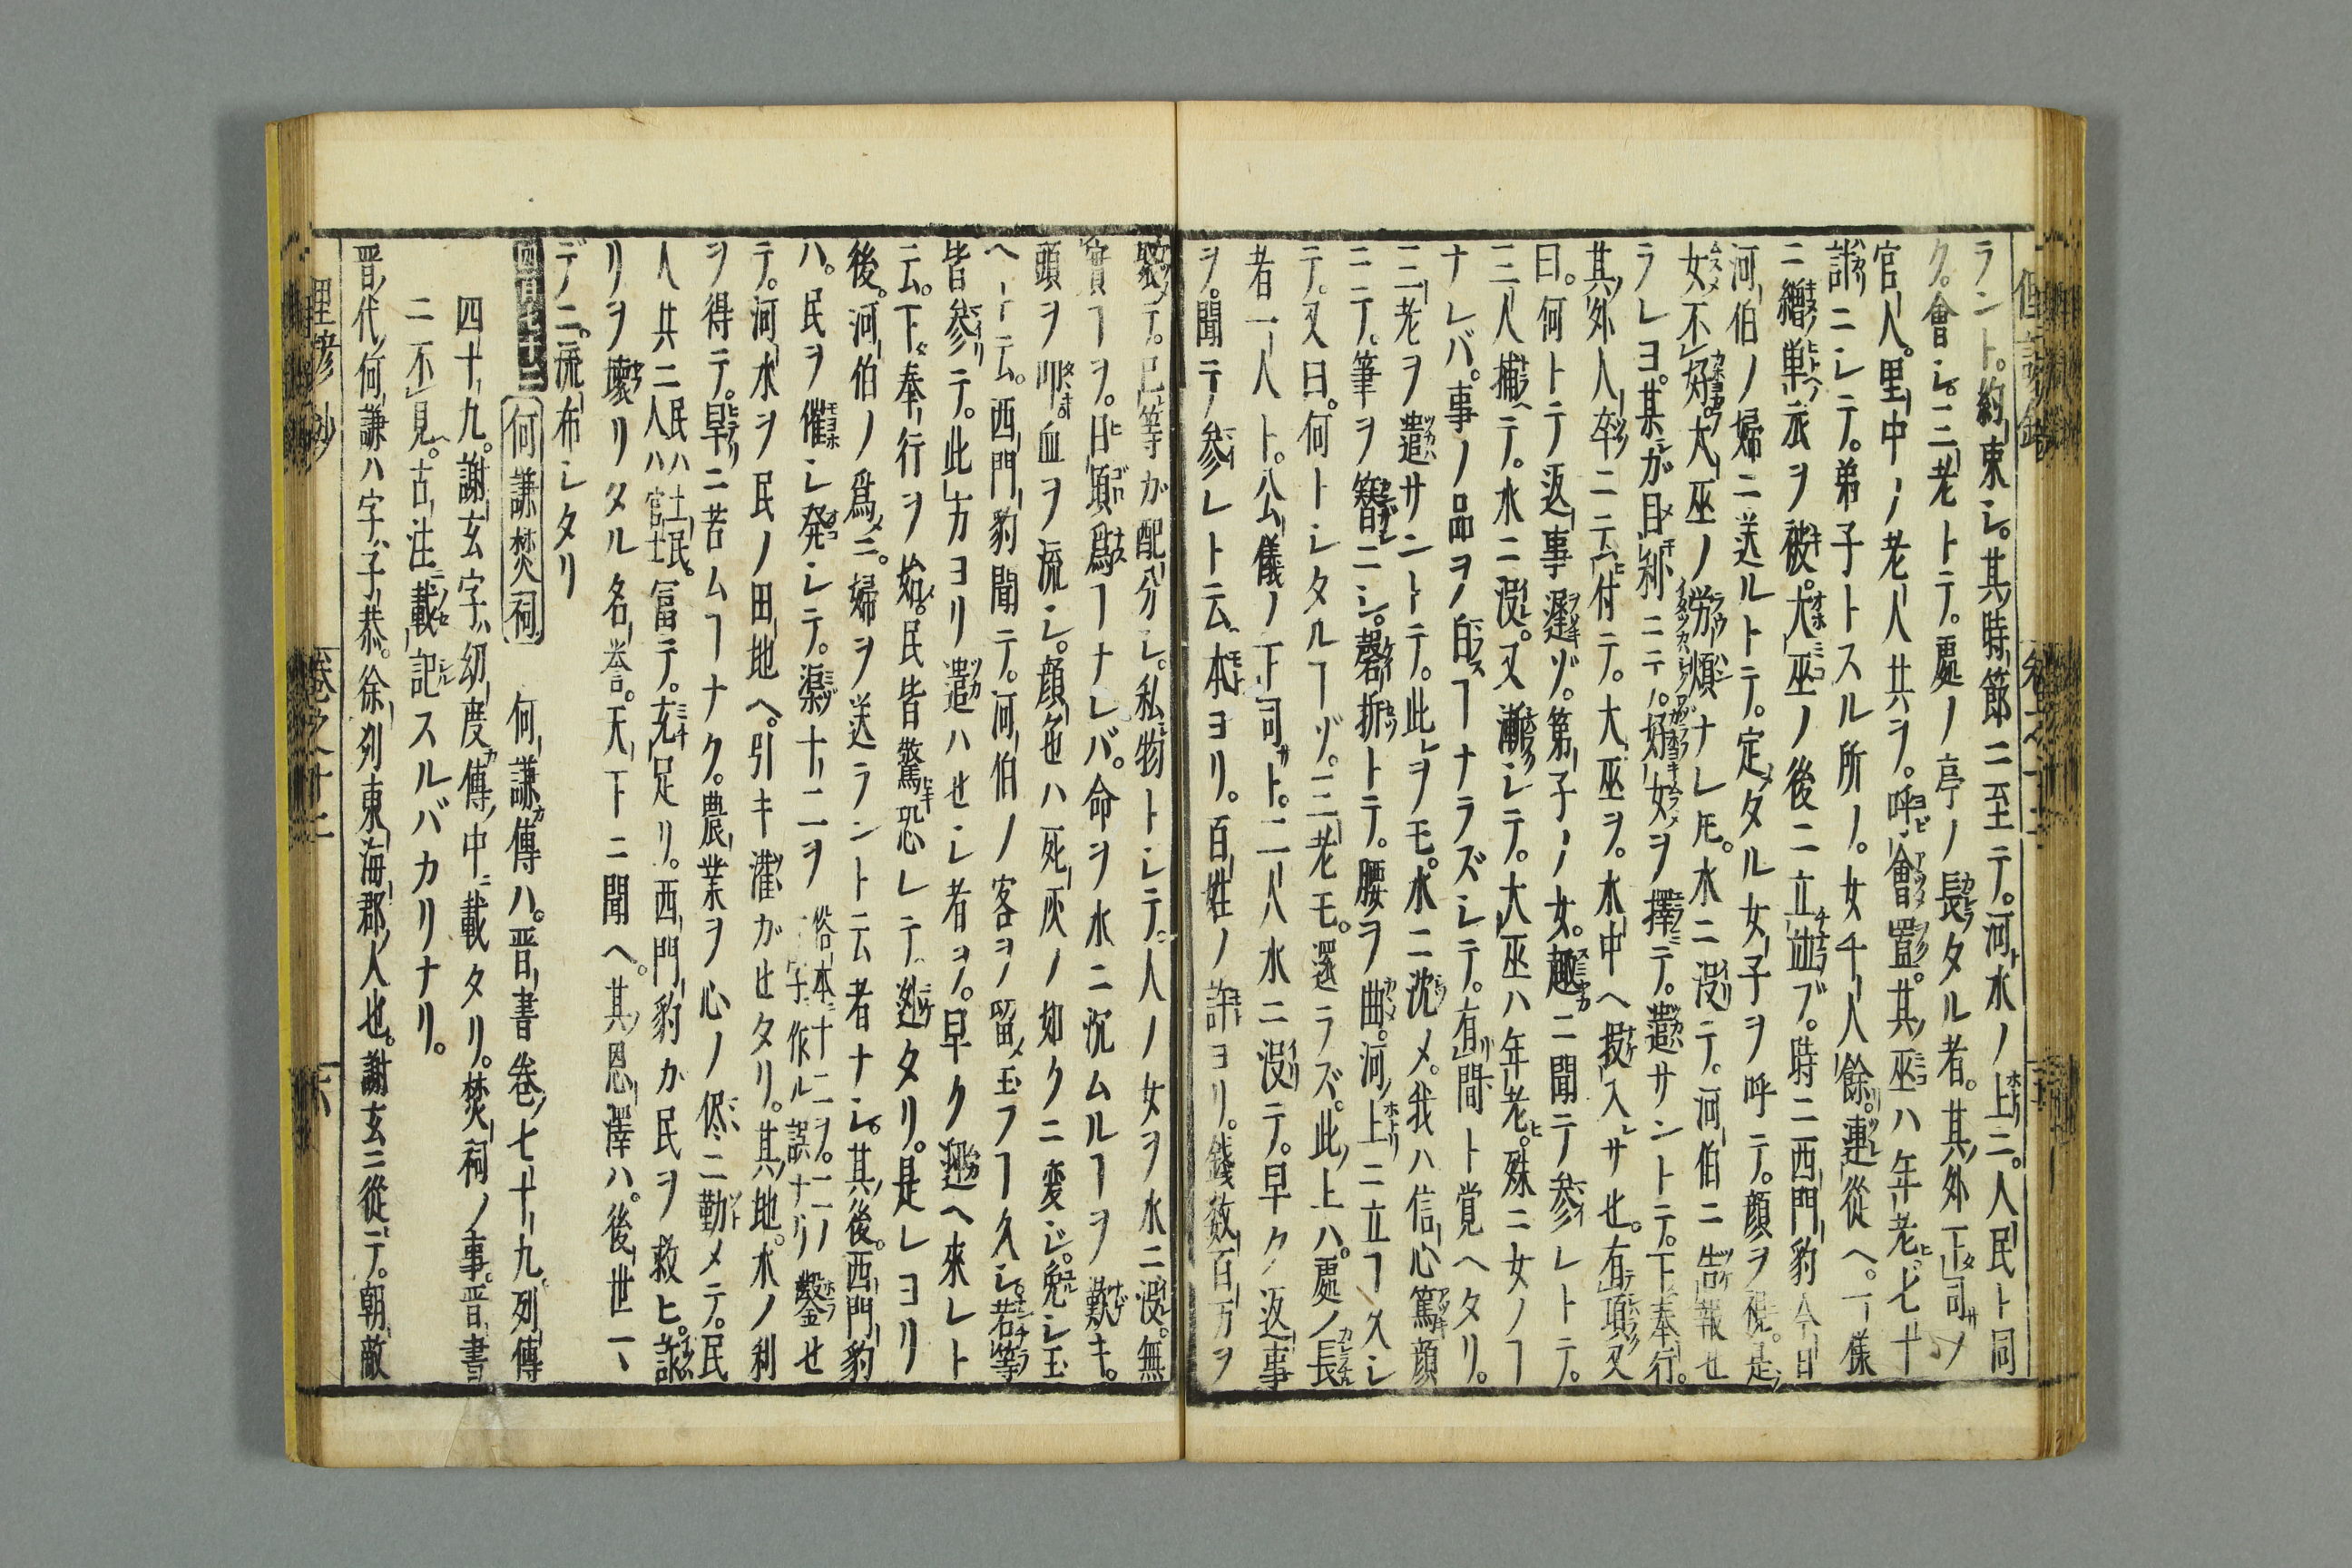 ラント。約束シ。其時節ニ至テ。河水ノ上ニ。人民ト同
ク。會シ。三老トテ。處ノ亭ノ長タル者。其外下司ノ
官人。里中ノ老人共ヲ。呼會置。其巫ハ年老。七十
許ニシテ。弟子トスル所ノ。女千人餘。連從ヘ。一樣
ニ繒単衣ヲ被。大巫ノ後ニ立並ブ。時ニ西門豹今日
河伯ノ婦ニ送ルトテ。定タル女子ヲ呼テ。顔ヲ視。是
女不好。大巫ノ労煩ナレ𪜈。水ニ没テ。河伯ニ告報セ
ラレヨ。某ガ目利ニテ。好女ヲ擇テ。遣サントテ。下奉行。
其外人卒ニ云付テ。大巫ヲ。水中ヘ投入サセ。有頃又
曰。何トテ返事遲ゾ。第子ノ女。趣ニ聞テ参レトテ。
三人捕テ。水ニ没。又漸シテ。大巫ハ年老。殊ニ女ノヿ
ナレバ。事ノ品ヲ白ヿナラズシテ。有間ト覚ヘタリ。
三老ヲ遣サントテ。此ヲモ。水ニ沈メ。我ハ信心篤顔
ニテ。筆ヲ簪ニシ。磬折トテ。腰ヲ曲。河上ニ立ヿ久シ
テ。又曰。何トシタルヿゾ。三老モ。還ラズ。此上ハ。處ノ長
者一人ト。公儀ノ下司ト。二人水ニ没テ。早ク返事
ヲ。聞テ参レト云。本ヨリ。百姓ノ許ヨリ。錢数百万ヲ
聚テ。己等ガ配分シ。私物トシテ。人ノ女ヲ水ニ没。無
實ヿヲ。日頃爲ヿナレバ。命ヲ水ニ沉ムルヿヲ歎キ。
頭ヲ叩血ヲ流シ。顔色ハ死灰ノ如クニ変ジ。免シ玉
ヘト云。西門豹聞テ。河伯ノ客ヲ留玉フヿ久シ。若等
皆参テ。此方ヨリ遣ハセシ者ヲ。早ク迎ヘ來レト
云。下奉行ヲ始。民皆驚恐レテ迯タリ。是レヨリ
後。河伯ノ爲ニ。婦ヲ送ラント云者ナシ。其後。西門豹
ハ。民ヲ催シ発シテ。渠十二ヲ 俗本十二ヲ。二ノ字作ル誤ナリ 鑿セ
テ。河水ヲ民ノ田地ヘ。引キ灌ガセタリ。其地。水ノ利
ヲ得テ。旱ニ苦ムヿナク。農業ヲ心ノ侭ニ勤メテ。民
人共ニ 民ハ土民。人ハ官士 冨テ。充足リ。西門豹ガ民ヲ救ヒ。訛
リヲ壞リタル名誉。天下ニ聞ヘ。其恩澤ハ。後世マ
デノニ。流布シタリ
何謙焚祠 何謙傳ハ。晋書卷七十九。列傳
四十九。謝玄字幼度傳中載タリ。焚祠ノ事。晋書
ニ不見。古注載記スルバカリナリ。
晋代。何謙ハ字子恭。徐列東海郡人也。謝玄ニ從テ。朝敵
卷之十二